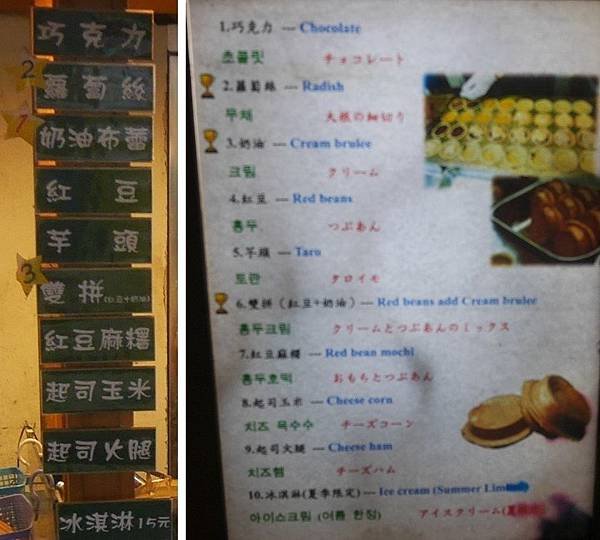 巧克力
2
蘿蔔絲
1
奶油布蕾
紅豆
芋頭
3
雙拼(紅豆+奶油)
紅豆麻糬
起司玉米
起司火腿
冰淇淋15元
1.巧克力 --- Chocolate
초콜릿 チョコレート
2.蘿蔔絲 --- Radish
무채 大根の細切り
3.奶油 --- Cream brulee
크림 クリーム
4.紅豆 --- Red beans
홍두 つぶあん
5.芋頭 --- Taro
토란 タロイモ
6.雙拼(紅豆+奶油) --- Red beans add Cream brulee
홍두크림 クリームとつぶあんのミックス
7.紅豆麻糬 --- Red bean mochi
홍두호떡 おもちとつぶあん
8.起司玉米 --- Cheese corn
치즈 옥수수 チーズコーン
9.起司火腿 --- Cheese ham
치즈햄 チーズハム
10.冰淇淋(夏季限定) --- Ice cream (Summer
아이스크림 (여름 한정) アイスクリーム